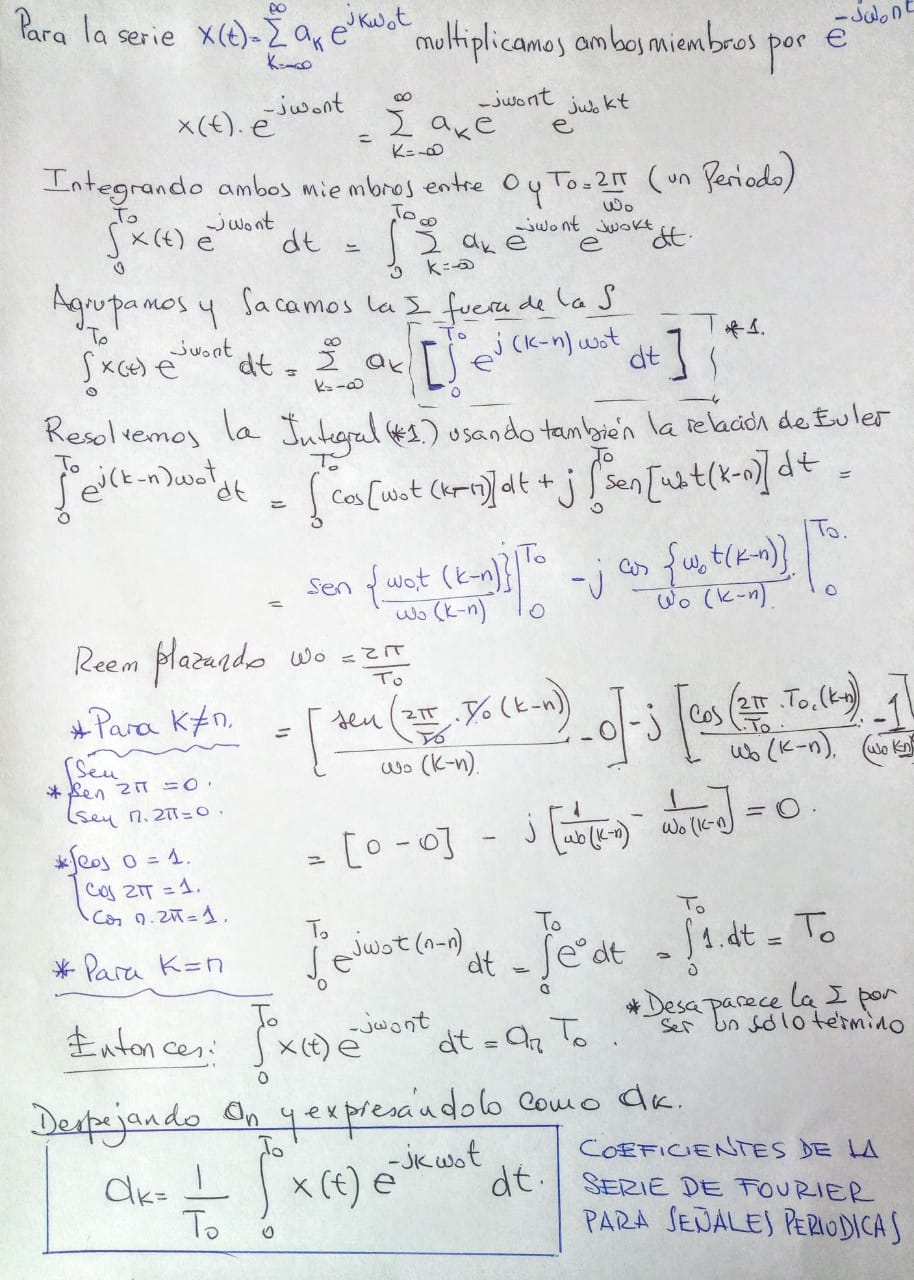 Para la serie x(t)=∑_{K=-∞}^{∞} a_K e^{jKω₀t} multiplicamos ambos miembros por e^{-jω₀nt}
x(t). e^{-jω₀nt} = ∑_{K=-∞}^{∞} a_K e^{-jω₀nt} e^{jω₀kt}
Integrando ambos miembros entre 0 y T₀=2π/ω₀ (un Periodo)
∫₀^{T₀} x(t) e^{-jω₀nt} dt = ∫₀^{T₀} ∑_{K=-∞}^{∞} a_K e^{-jω₀nt} e^{jω₀kt} dt.
Agrupamos y Sacamos la Σ fuera de la ∫
∫₀^{T₀} x(t) e^{-jω₀nt} dt = ∑_{K=-∞}^{∞} a_K [∫₀^{T₀} e^{j(k-n)ω₀t} dt] *1.
Resolvemos la Integral (*1.) usando también la relación de Euler
∫₀^{T₀} e^{j(k-n)ω₀t} dt = ∫₀^{T₀} cos[ω₀t(k-n)] dt + j ∫₀^{T₀} sen[ω₀t(k-n)] dt =
= sen{ω₀t(k-n)}/ω₀(k-n) |₀^{T₀} - j cos{ω₀t(k-n)}/ω₀(k-n). |₀^{T₀}.
Reemplazando ω₀ = 2π/T₀
* Para K≠n.
= [sen(2π/T₀ . T₀(k-n))/ω₀(k-n). - 0] - j [cos(2π/T₀ . T₀.(k-n))/ω₀(k-n). - 1/(ω₀ k-n)]
Sen
* Sen 2π = 0.
sen n.2π=0.
= [0-0] - j [1/ω₀(k-n) - 1/ω₀(k-n)] = 0.
* cos 0 = 1.
cos 2π = 1.
cos n.2π=1.
* Para K=n
∫₀^{T₀} e^{jω₀t(n-n)} dt = ∫₀^{T₀} e⁰ dt = ∫₀^{T₀} 1.dt = T₀
Entonces: ∫₀^{T₀} x(t) e^{-jω₀nt} dt = a_n T₀.
* Desaparece la Σ por
ser un sólo término
Despejando a_n y expresándolo como a_K.
a_K = 1/T₀ ∫₀^{T₀} x(t) e^{-jkω₀t} dt.
COEFICIENTES DE LA
SERIE DE FOURIER
PARA SEÑALES PERIODICAS